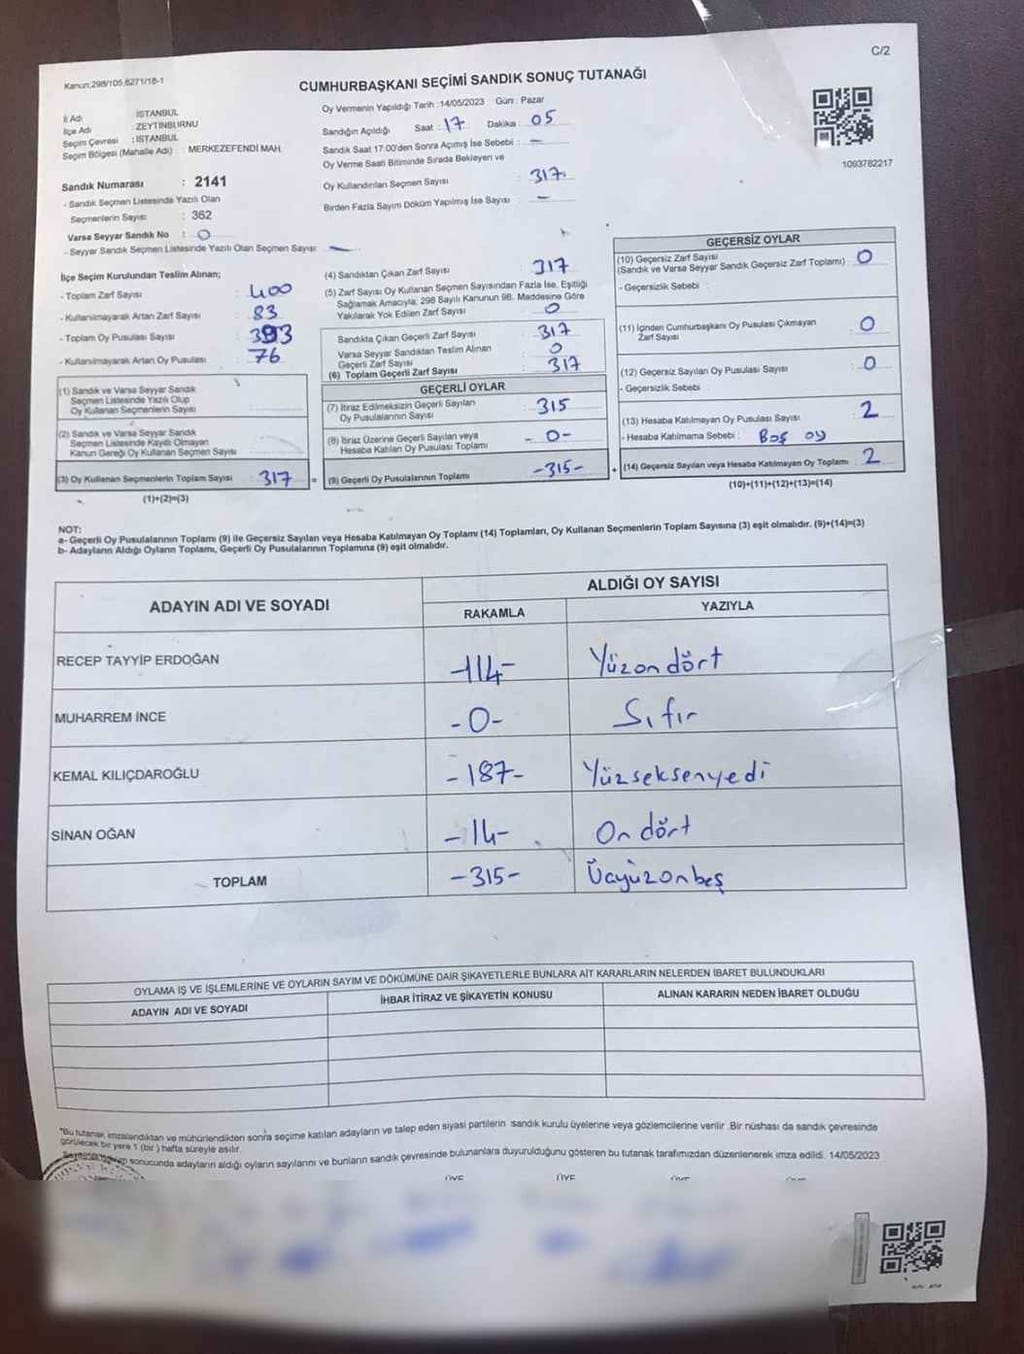 C/2
Kanun:298/105,6271/18-1
CUMHURBAŞKANI SEÇİMİ SANDIK SONUÇ TUTANAĞI
İl Adı : İSTANBUL
İlçe Adı : ZEYTİNBURNU
Seçim Çevresi : İSTANBUL
Seçim Bölgesi (Mahalle Adı) : MERKEZEFENDİ MAH.
Oy Vermenin Yapıldığı Tarih :14/05/2023 Gün : Pazar
Sandığın Açıldığı Saat : 17 Dakika : 05
Sandık Saat 17:00'den Sonra Açılmış İse Sebebi : —
Oy Verme Saati Bitiminde Sırada Bekleyen ve
Oy Kullandırılan Seçmen Sayısı : 317
Birden Fazla Sayım Döküm Yapılmış İse Sayısı : —
1093782217
Sandık Numarası : 2141
- Sandık Seçmen Listesinde Yazılı Olan
Seçmenlerin Sayısı : 362
Varsa Seyyar Sandık No : 0
- Seyyar Sandık Seçmen Listesinde Yazılı Olan Seçmen Sayısı: —
İlçe Seçim Kurulundan Teslim Alınan;
- Toplam Zarf Sayısı : 400
- Kullanılmayarak Artan Zarf Sayısı : 83
- Toplam Oy Pusulası Sayısı : 393
- Kullanılmayarak Artan Oy Pusulası : 76
(1) Sandık ve Varsa Seyyar Sandık
Seçmen Listesinde Yazılı Olup
Oy Kullanan Seçmenlerin Sayısı
(2) Sandık ve Varsa Seyyar Sandık
Seçmen Listesinde Kayıtlı Olmayan
Kanun Gereği Oy Kullanan Seçmen Sayısı
(3) Oy Kullanan Seçmenlerin Toplam Sayısı : 317
(1)+(2)=(3)
(4) Sandıktan Çıkan Zarf Sayısı : 317
(5) Zarf Sayısı Oy Kullanan Seçmen Sayısından Fazla İse, Eşitliği
Sağlamak Amacıyla; 298 Sayılı Kanunun 98. Maddesine Göre
Yakılarak Yok Edilen Zarf Sayısı : 0
Sandıkta Çıkan Geçerli Zarf Sayısı : 317
Varsa Seyyar Sandıktan Teslim Alınan
Geçerli Zarf Sayısı : 0
(6) Toplam Geçerli Zarf Sayısı : 317
GEÇERLİ OYLAR
(7) İtiraz Edilmeksizin Geçerli Sayılan
Oy Pusulalarının Sayısı : 315
(8) İtiraz Üzerine Geçerli Sayılan veya
Hesaba Katılan Oy Pusulası Toplamı : -0-
= (9) Geçerli Oy Pusulalarının Toplamı -315-
GEÇERSİZ OYLAR
(10) Geçersiz Zarf Sayısı
(Sandık ve Varsa Seyyar Sandık Geçersiz Zarf Toplamı) : 0
- Geçersizlik Sebebi :
(11) İçinden Cumhurbaşkanı Oy Pusulası Çıkmayan
Zarf Sayısı : 0
(12) Geçersiz Sayılan Oy Pusulası Sayısı : 0
- Geçersizlik Sebebi :
(13) Hesaba Katılmayan Oy Pusulası Sayısı : 2
- Hesaba Katılmama Sebebi : Boş oy
+ (14) Geçersiz Sayılan veya Hesaba Katılmayan Oy Toplamı : 2
(10)+(11)+(12)+(13)=(14)
NOT:
a- Geçerli Oy Pusulalarının Toplamı (9) ile Geçersiz Sayılan veya Hesaba Katılmayan Oy Toplamı (14) Toplamları, Oy Kullanan Seçmenlerin Toplam Sayısına (3) eşit olmalıdır. (9)+(14)=(3)
b- Adayların Aldığı Oyların Toplamı, Geçerli Oy Pusulalarının Toplamına (9) eşit olmalıdır.
ADAYIN ADI VE SOYADI
ALDIĞI OY SAYISI
RAKAMLA YAZIYLA
RECEP TAYYİP ERDOĞAN -114- Yüzondört
MUHARREM İNCE -0- Sıfır
KEMAL KILIÇDAROĞLU -187- Yüzseksenyedi
SİNAN OĞAN -14- On dört
TOPLAM -315- Üçyüzonbeş
OYLAMA İŞ VE İŞLEMLERİNE VE OYLARIN SAYIM VE DÖKÜMÜNE DAİR ŞİKAYETLERLE BUNLARA AİT KARARLARIN NELERDEN İBARET BULUNDUKLARI
ADAYIN ADI VE SOYADI İHBAR İTİRAZ VE ŞİKAYETİN KONUSU ALINAN KARARIN NEDEN İBARET OLDUĞU
"Bu tutanak, imzalandıktan ve mühürlendikten sonra seçime katılan adayların ve talep eden siyasi partilerin sandık kurulu üyelerine veya gözlemcilerine verilir .Bir nüshası da sandık çevresinde
görülecek bir yere 1 (bir ) hafta süreyle asılır.
sonucunda adayların aldığı oyların sayılarını ve bunların sandık çevresinde bulunanlara duyurulduğunu gösteren bu tutanak tarafımızdan düzenlenerek imza edildi. 14/05/2023
ÜYE ÜYE